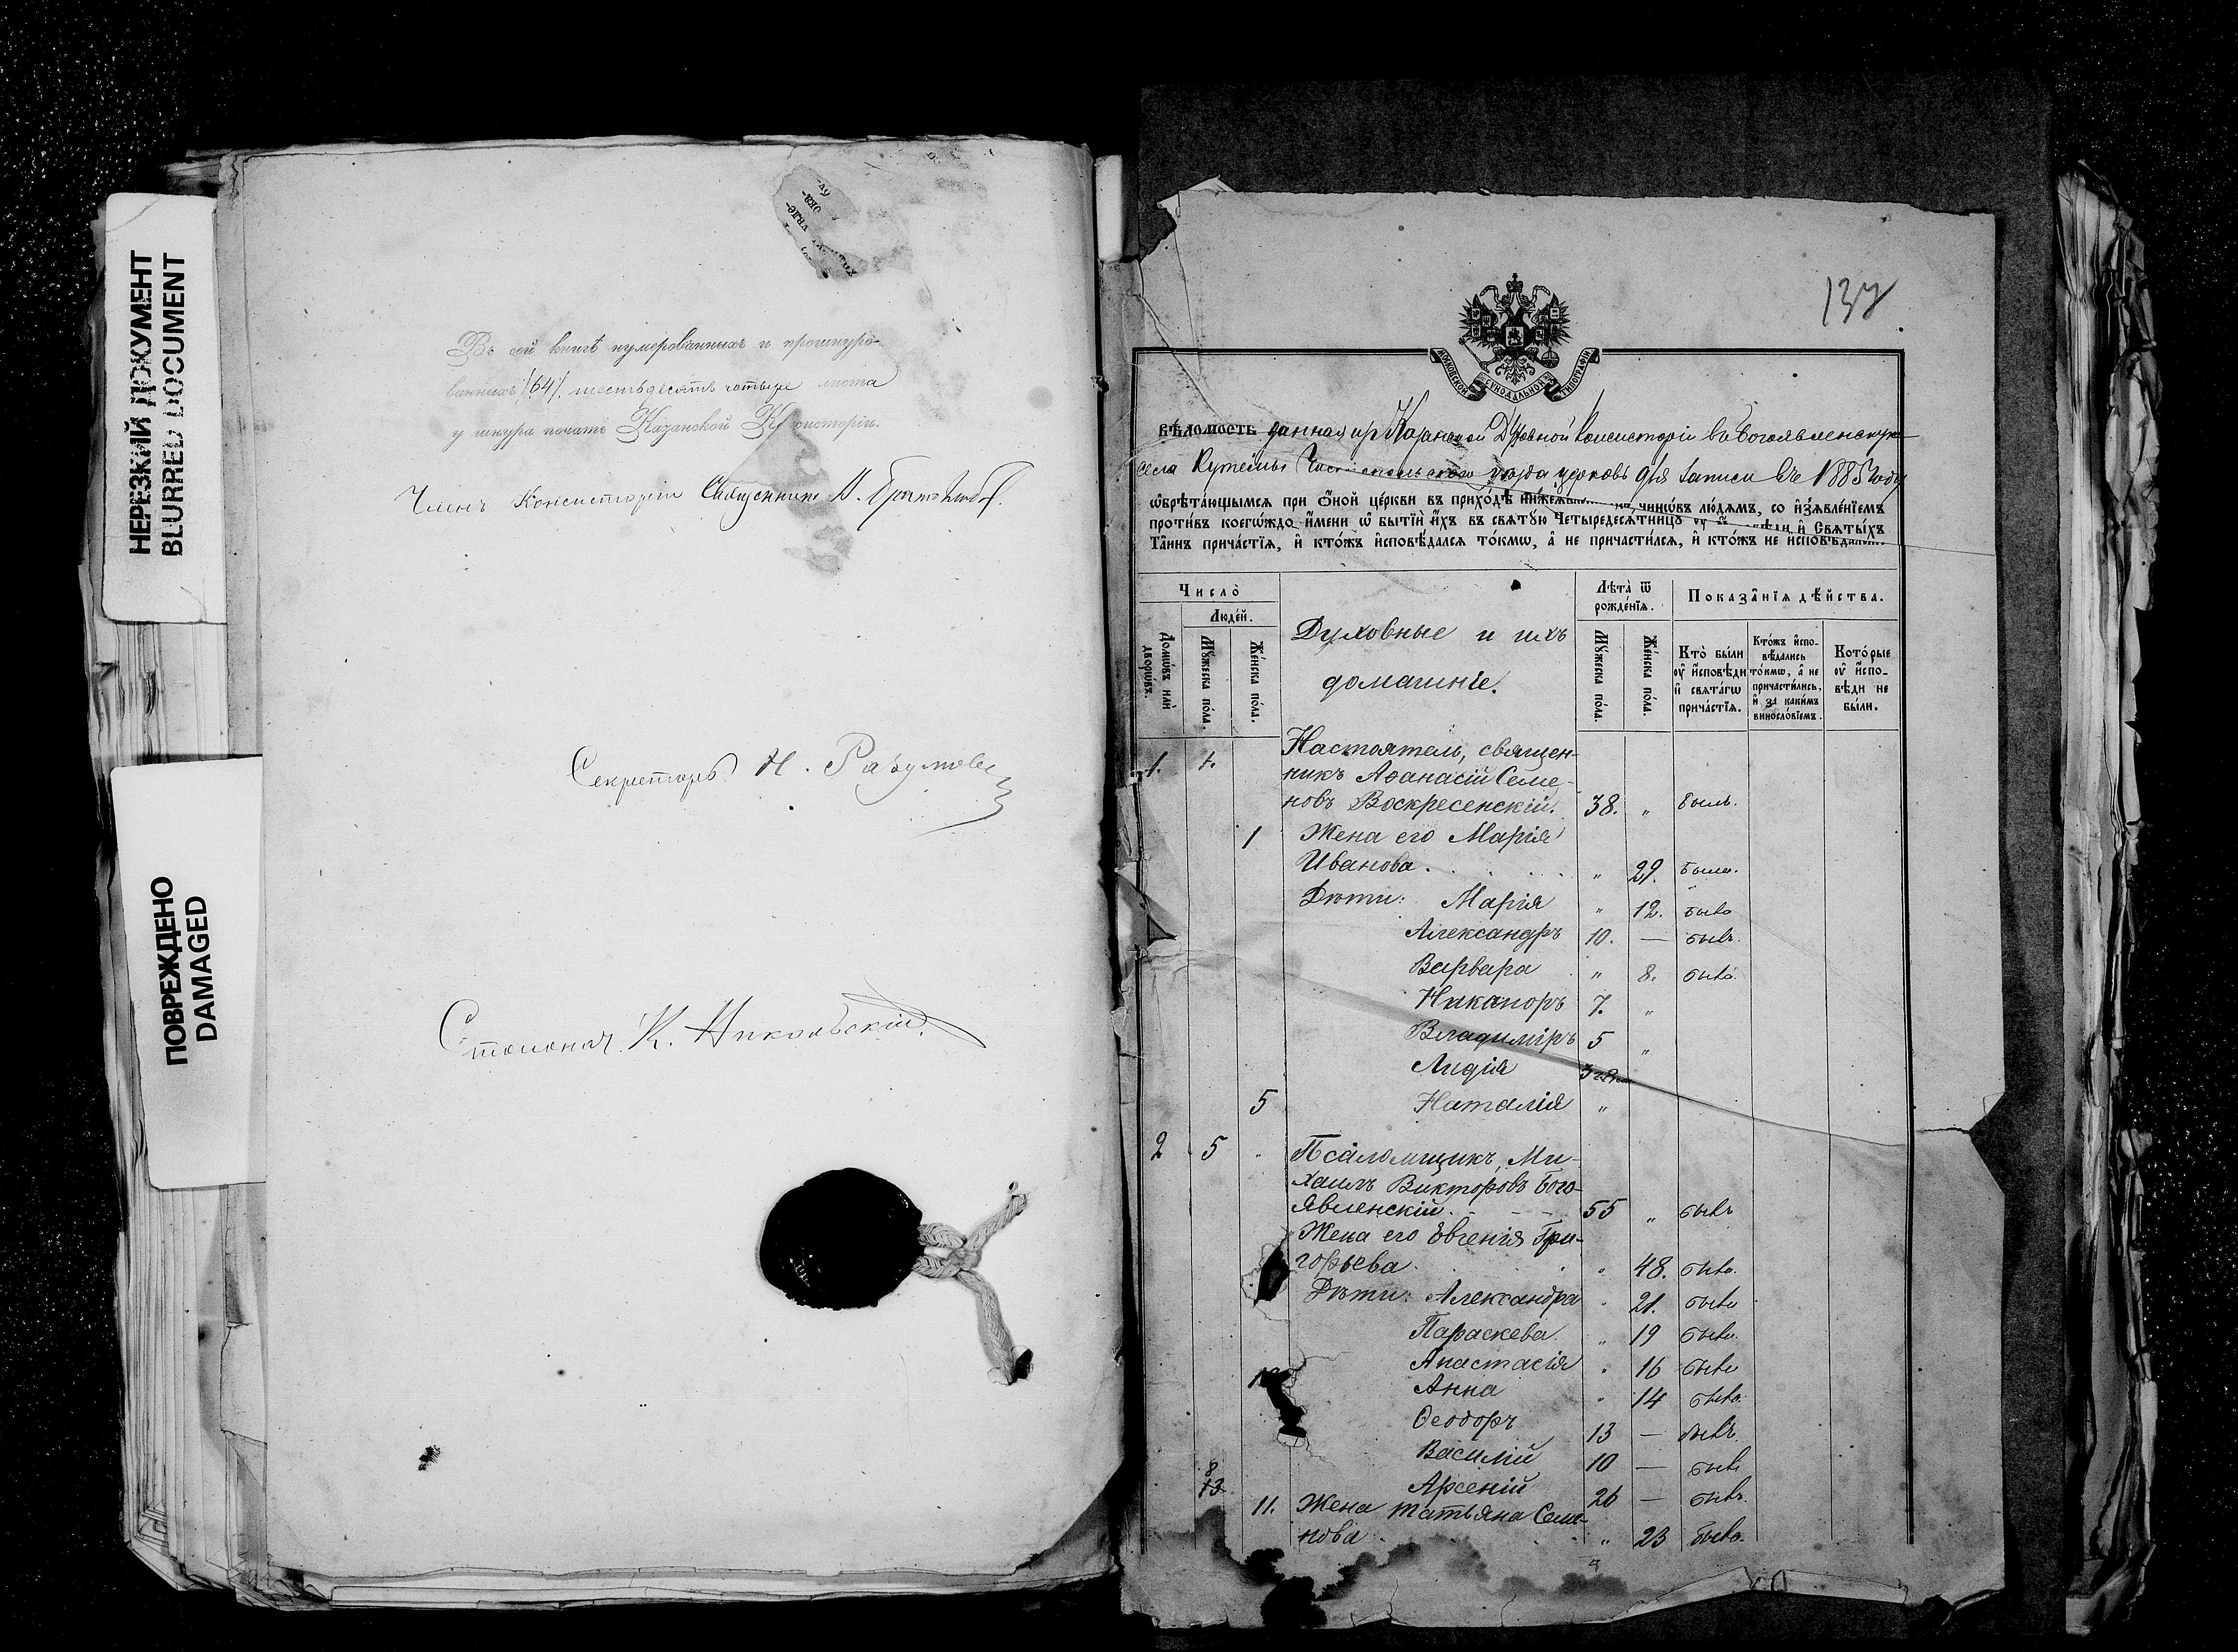 НЕРЕЗКИЙ ДОКУМЕНТ
BLURRED DOCUMENT
ПОВРЕЖДЕНО
DAMAGED
Въ сей книгѣ нумерованныхъ и прошнуро-
ванныхъ /64/ шестьдесятъ четыре листа
у шнура печать Казанской Консисторіи.
Членъ Консисторіи Священникъ
Секретарь Н. Разумов
Столонач. К. Никольскій.
137
МОСКОВСКОЙ СѴНОДАЛЬНОЙ ТѴПОГРАФІИ
вѣдомость данная изъ Казанской Духовной Консисторіи въ Богоявленскую
села Кутемы Чистопольскаго уѣзда церковь для записи въ 1885 году
ѡбрѣта́ющымсѧ при ѻ҆́ной це́ркви въ прихо́дѣ чинѡ́въ лю́демъ, со и҆з̾ѧвле́нїемъ
проти́въ коегѡ́ждо и҆́мени ѡ҆ бытїѝ и҆́хъ въ свѧтꙋ́ю Четыредесѧ́тницꙋ и҆ Свѧты́хъ
Та̑инъ прича́стїѧ, и҆ кто́жъ и҆сповѣ́далсѧ то́кмѡ, а҆ не причасти́лсѧ, и҆ кто́жъ не и҆сповѣ́далсѧ.
Число̀
Люде́й.
Домѡ́въ и҆лѝ дворѡ́въ.
Мꙋ́жеска по́ла.
Же́нска по́ла.
Духовные и ихъ
домашніе.
Лѣта̀ ѿ рожде́нїѧ.
Мꙋ́жеска по́ла.
Же́нска по́ла.
Показа̑нїѧ дѣ́йства.
Кто̀ бы́ли ᲂу҆ и҆́сповѣди и҆ свѧта́гѡ прича́стїѧ.
Кто́жъ и҆спо-вѣ́дались то́кмѡ, а҆ не причасти́лись, и҆ за каки́мъ винослѡ́вїемъ.
Кото́рые ᲂу҆ и҆́спо-вѣди не бы́ли.
1. 1. Настоятель, священ-
никъ Аѳанасій Семе-
новъ Воскресенскій. 38. „ былъ.
1 Жена его Марія
Иванова. „ 29. была.
Дѣти: Марія „ 12. была
Александръ 10. — былъ.
Варвара „ 8. была
Никаноръ 7. „
Владиміръ 5 „
Лидія 3
5 Наталія „
2 5 „ Псаломщикъ, Ми-
хаилъ Викторовъ Бого-
явленскій. 55 „ былъ
Жена его Евгенія Гри-
горьева. „ 48. была.
Дѣти: Александра „ 21. была
Параскева. „ 19 была.
Анастасія „ 16 была
Анна „ 14 была.
Ѳеодоръ 13 — былъ.
Василій 10 — былъ
8
13 Арсеній 26 — былъ.
11. Жена Татьяна Семе-
нова „ 23 была.